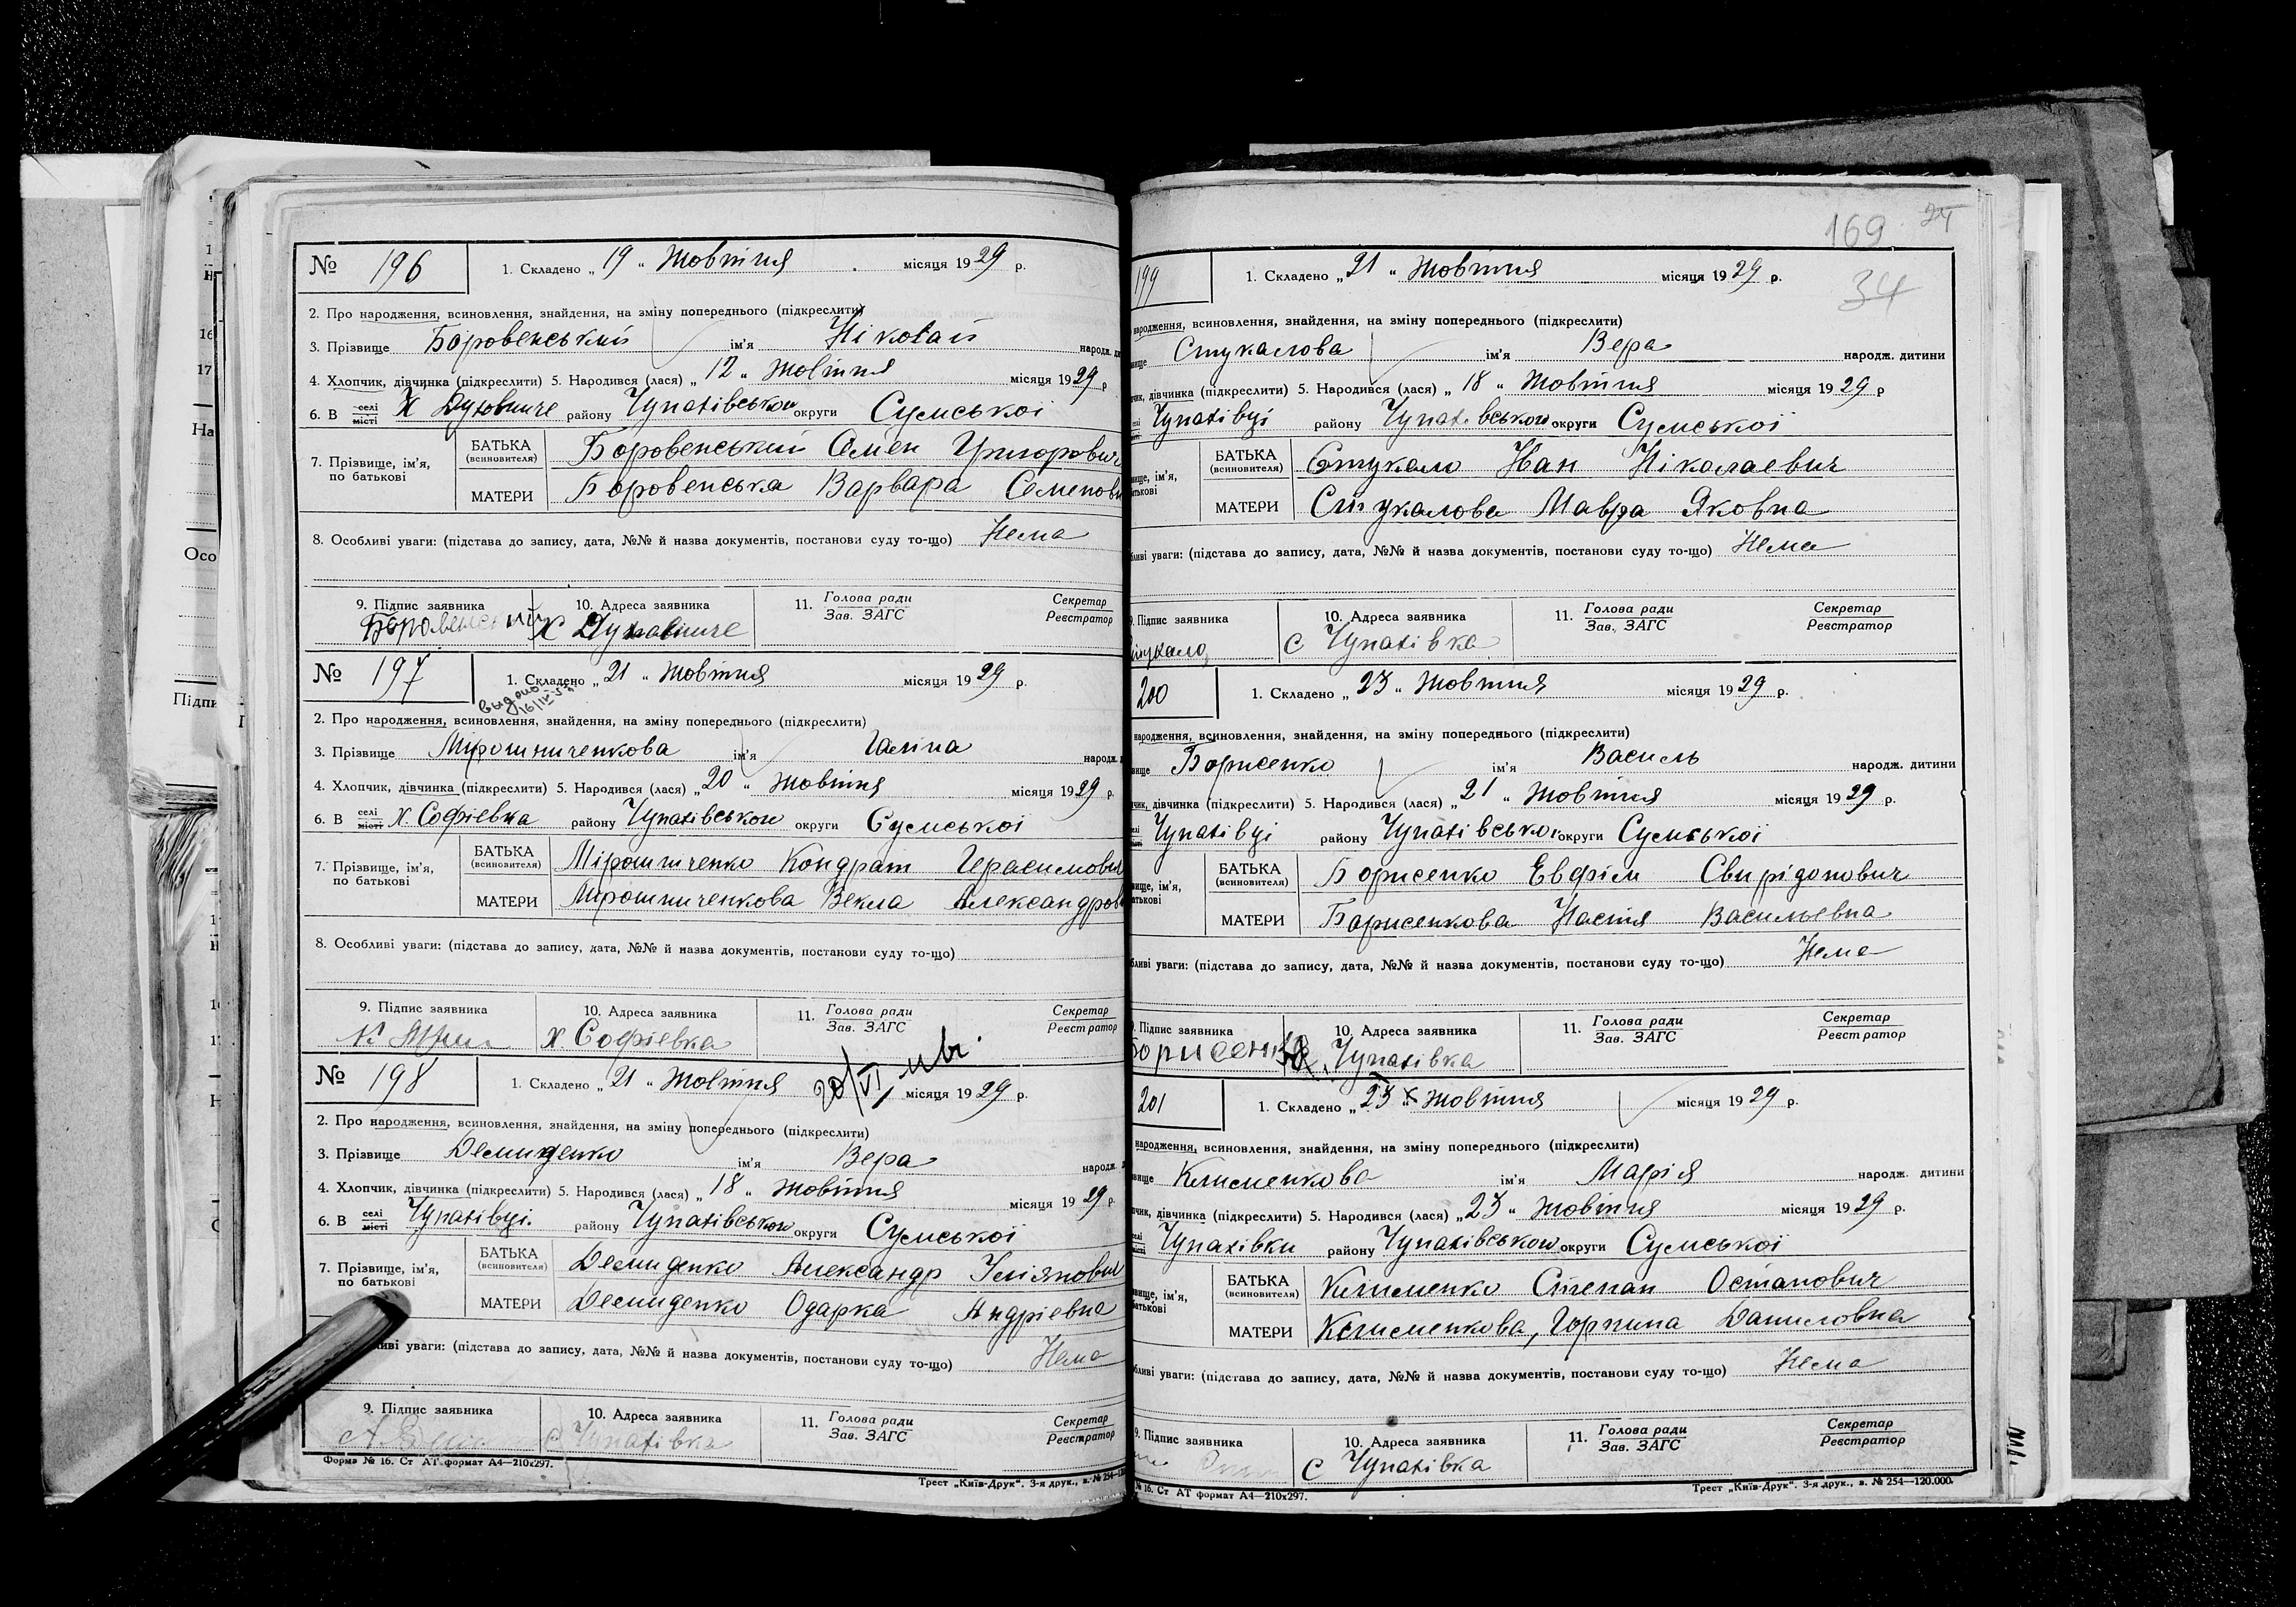 № 196 1. Складено „ 19 “ Жовтня місяця 1929 р.
2. Про народження, всиновлення, знайдення, на зміну попереднього (підкреслити)
3. Прізвище Боровенський ім'я Ніколай народж.
4. Хлопчик, дівчинка (підкреслити) 5. Народився (лася) „ 12 “ Жовтня місяця 1929 р
6. В селі місті Х району Чупахівського округи Сумської
7. Прізвище, ім'я, по батькові
БАТЬКА (всиновителя) Боровенський Семен Григорович
МАТЕРИ Боровенська Варвара
8. Особливі уваги: (підстава до запису, дата, №№ й назва документів, постанови суду то-що) Нема
9. Підпис заявника 10. Адреса заявника 11. Голова ради Зав. ЗАГС Секретар Реєстратор
Боровенський Х
№ 197 1. Складено „ 21 “ Жовтня місяця 1929 р.
выдано 16/IV
2. Про народження, всиновлення, знайдення, на зміну попереднього (підкреслити)
3. Прізвище Мірошниченкова ім'я Галина народж.
4. Хлопчик, дівчинка (підкреслити) 5. Народився (лася) „ 20 “ Жовтня місяця 1929 р.
6. В селі місті Х. Софіевка району Чупахівського округи Сумської
7. Прізвище, ім'я, по батькові
БАТЬКА (всиновителя) Мірошниченко Кондрат Герасимович
МАТЕРИ Мірошниченкова Векла
8. Особливі уваги: (підстава до запису, дата, №№ й назва документів, постанови суду то-що)
9. Підпис заявника 10. Адреса заявника 11. Голова ради Зав. ЗАГС Секретар Реєстратор
Х. Софіевка
№ 198 1. Складено „ 21 “ Жовтня 20/VI місяця 1929 р.
2. Про народження, всиновлення, знайдення, на зміну попереднього (підкреслити)
3. Прізвище Демиденко ім'я Вера народж.
4. Хлопчик, дівчинка (підкреслити) 5. Народився (лася) „ 18 “ Жовтня місяця 1929 р.
6. В селі місті Чупахівці. району Чупахівського округи Сумської
7. Прізвище, ім'я, по батькові
БАТЬКА (всиновителя) Демиденко Александр
МАТЕРИ Демиденко Одарка Андріевна
уваги: (підстава до запису, дата, №№ й назва документів, постанови суду то-що) Нема
9. Підпис заявника 10. Адреса заявника 11. Голова ради Зав. ЗАГС Секретар Реєстратор
Чупахівка
Форма № 16. Ст АТ формат А4—210х297.
Трест „Київ-Друк“. 3-я друк., в. № 254—
169 24
34
199 1. Складено „ 21 “ Жовтня місяця 1929 р.
народження, всиновлення, знайдення, на зміну попереднього (підкреслити)
Стукалова ім'я Вера народж. дитини
дівчинка (підкреслити) 5. Народився (лася) „ 18 “ Жовтня місяця 1929 р
Чупахівці району Чупахівського округи Сумської
БАТЬКА (всиновителя) Стукало Іван Ніколаевич
МАТЕРИ Стукалова Мавра Яковна
уваги: (підстава до запису, дата, №№ й назва документів, постанови суду то-що) Нема
Підпис заявника 10. Адреса заявника 11. Голова ради Зав. ЗАГС Секретар Реєстратор
с Чупахівка
200 1. Складено „ 23 “ Жовтня місяця 1929 р.
народження, всиновлення, знайдення, на зміну попереднього (підкреслити)
Борисенко ім'я Василь народж. дитини
дівчинка (підкреслити) 5. Народився (лася) „ 21 “ Жовтня місяця 1929 р.
Чупахівці району Чупахівського округи Сумської
БАТЬКА (всиновителя) Борисенко Евфім Свирідонович
МАТЕРИ Борисенкова Настя Васильевна
уваги: (підстава до запису, дата, №№ й назва документів, постанови суду то-що) Нема
Підпис заявника 10. Адреса заявника 11. Голова ради Зав. ЗАГС Секретар Реєстратор
Чупахівка
201 1. Складено „ 23 “ Жовтня місяця 1929 р.
народження, всиновлення, знайдення, на зміну попереднього (підкреслити)
Клименкова ім'я Марія народж. дитини
дівчинка (підкреслити) 5. Народився (лася) „ 23 “ Жовтня місяця 1929 р.
Чупахівки району Чупахівського округи Сумської
БАТЬКА (всиновителя) Клименко Степан Остапович
МАТЕРИ Клименкова, Горпина Даниловна
уваги: (підстава до запису, дата, №№ й назва документів, постанови суду то-що) Нема
9. Підпис заявника 10. Адреса заявника 11. Голова ради Зав. ЗАГС Секретар Реєстратор
с Чупахівка
№ 16. Ст АТ формат А4—210х297.
Трест „Київ-Друк“. 3-я друк., в. № 254—120.000.